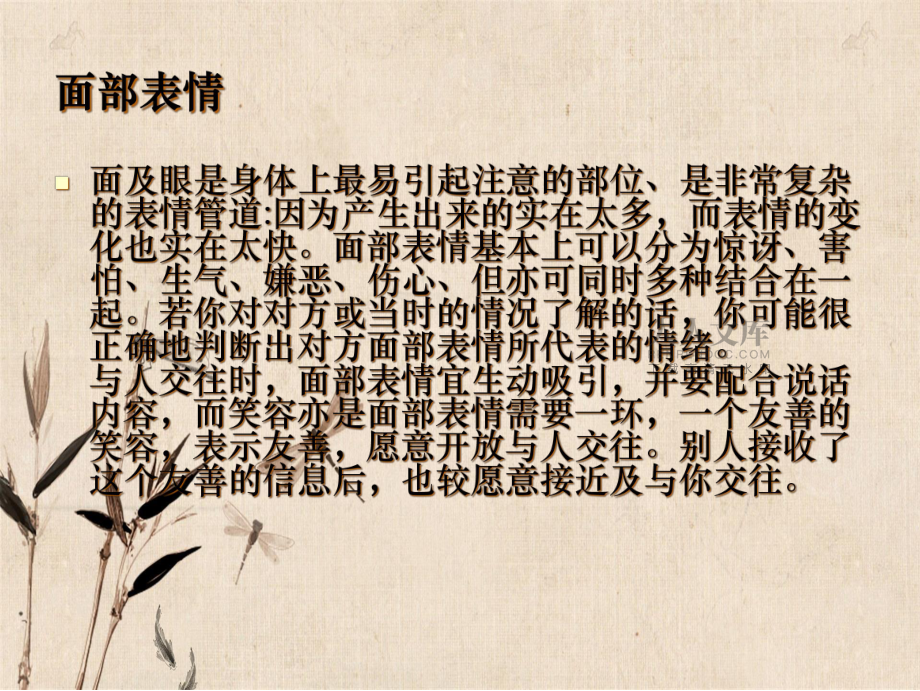 面部表情
面及眼是身体上最易引起注意的部位、是非常复杂
的表情管道:因为产生出来的实在太多，而表情的变
化也实在太快。面部表情基本上可以分为惊讶、害
怕、生气、嫌恶、伤心、但亦可同时多种结合在一
起。若你对对方或当时的情况了解的话，你可能很
正确地判断出对方面部表情所代表的情绪。
与人交往时，面部表情宜生动吸引，并要配合说话
内容，而笑容亦是面部表情需要一环，一个友善的
笑容，表示友善，愿意开放与人交往。别人接收了
这个友善的信息后，也较愿意接近及与你交往。